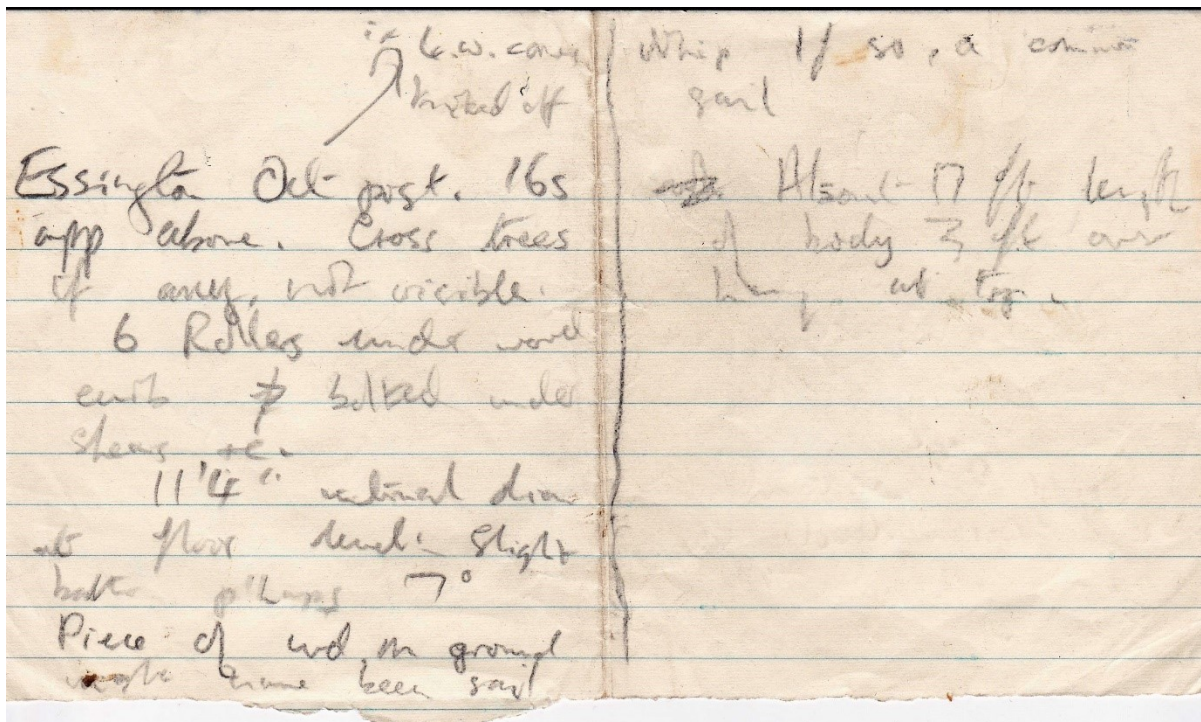 ie L.W. corner
knocked off
Essington Oct post. 16s
app above. Cross trees
if any, not visible.
6 Rollers under wood
curb & bolted under
shears etc.
11'4" internal diam
at floor level. Slight
batter p'haps 7°
Piece of wd, on ground
might have been sail
whip If so, a common
sail
About 17 ft length
of body 3 ft over
hang at top.